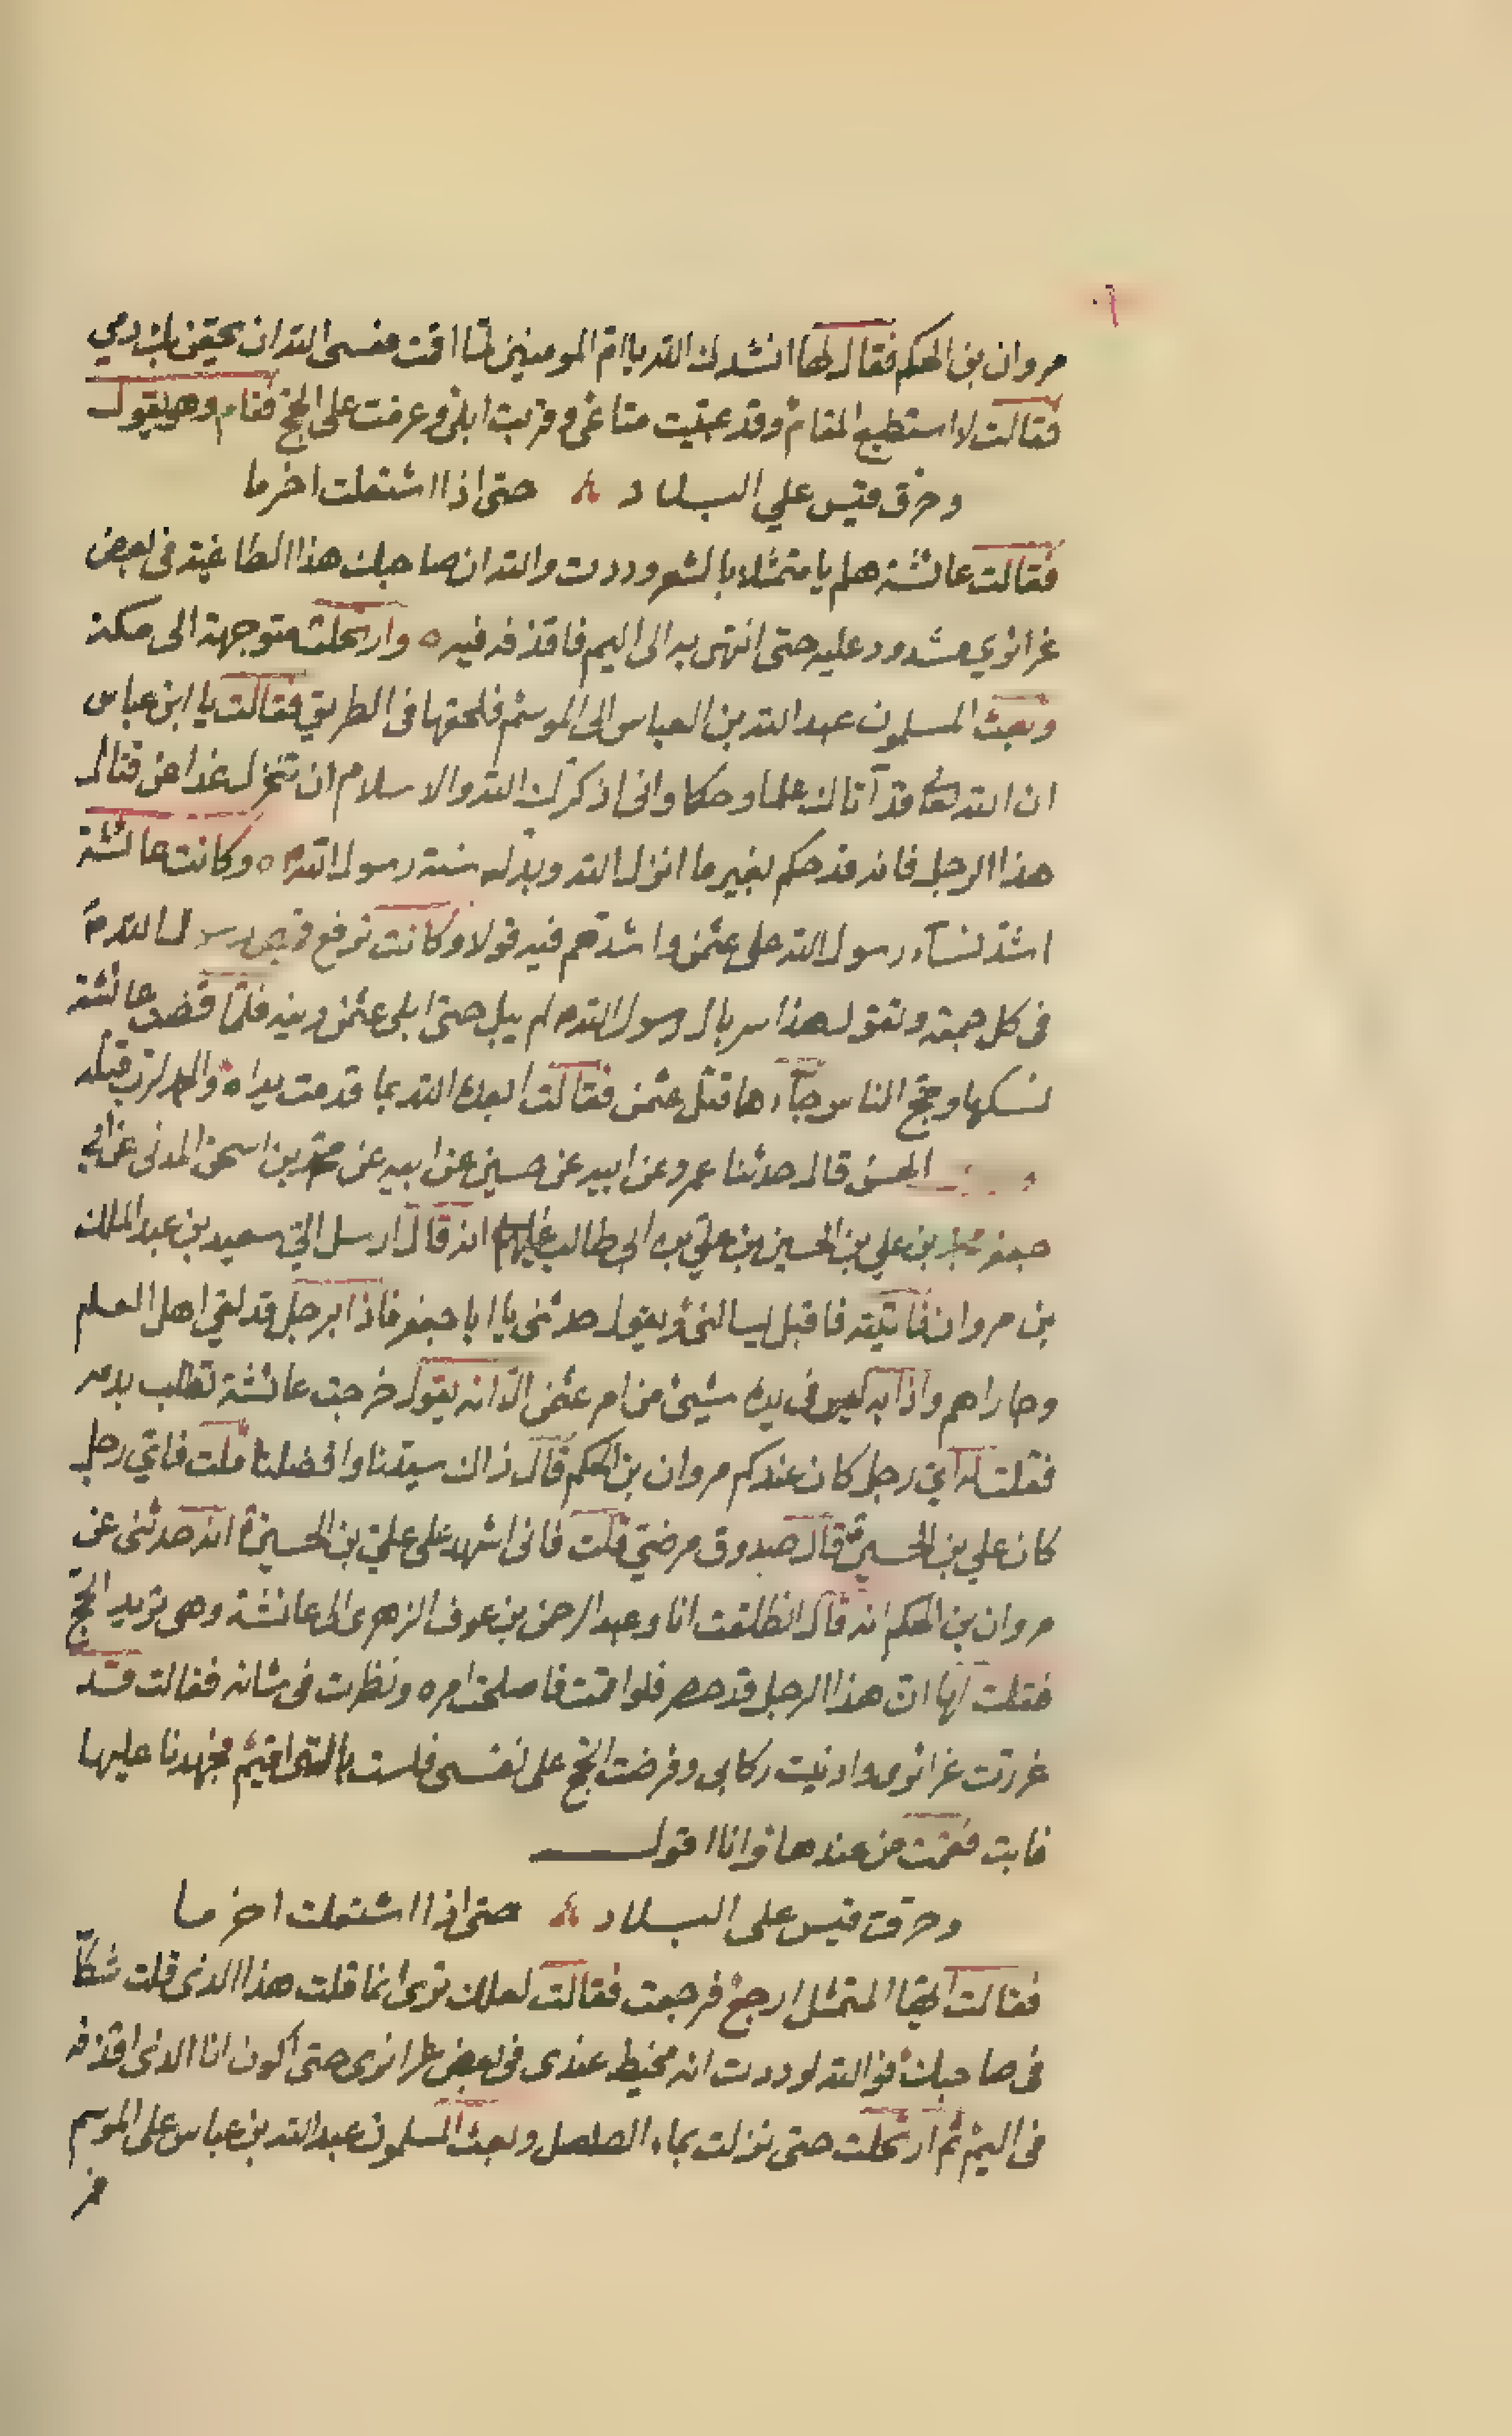 ٦
مروان بن الحكم فقال لها انشدك الله يا ام المومنين لما اقمت فعسى الله ان يحقن بك دمي
فقالت لا استطيع المقام وقد عبيت متاعي وقربت ابلي وعزمت على الحج فقام وهو يقول
وحرق قيس علي البلاد حتى اذا اشتعلت اخرما
فقالت عائشة هلم يا متمثلا بالشعر وددت والله ان صاحبك هذا الطاغية في بعض
غرائزي مشدود عليه حتى انتهى به الى اليم فاقذفه فيه ه وارتحلت متوجهة الى مكة
وبعث المسلمون عبد الله بن العباس الى الموسم فلحقها في الطريق فقالت يا ابن عباس
ان الله تعالى قد آتاك علما وحكما وانى اذكرك الله والاسلام ان تخزل غدا عن قتال
هذا الرجل فانه قد حكم بغير ما انزل الله وبدل سنة رسول الله ص ه وكانت عائشة
اشد نساء رسول الله على عثمن واشدهم فيه قولا وكانت ترفع قميص رسول الله ص
في كل جمعة وتقول هذا سربال رسول الله ص لم يبل حتى ابلى عثمن دينه فلما قضت عائشة
نسكها وحج الناس جاءها قتل عثمن فقالت ابعده الله بما قدمت يداه والحمد لله الذي قتله
الحسن قال حدثنا عمرو عن ابيه عن حسين عن ابيه عن محمد بن اسحق المدنى عن ابي
جعفر محمد بن علي بن الحسين بن علي بن ابي طالب عليهم انه قال ارسل الي سعيد بن عبد الملك
بن مروان فاتيته فاقبل يسالني ويقول حدثنى يا ابا جعفر فاذا برجل قد لقي اهل العلم
وجاراهم واذا به ليس في يده شيئ من امر عثمن الا انه يقول خرجت عائشة تطلب بدمه
فقلت له اي رجل كان عندكم مروان بن الحكم قال ذاك سيدنا وافضلنا قلت فاي رجل
كان علي بن الحسين قال صدوق مرضي قلت فانى اشهد على علي بن الحسين انه حدثنى عن
مروان بن الحكم انه قال انطلقت انا وعبد الرحمن بن عوف الزهرى الى عائشة وهى تريد الحج
فقلت لها ان هذا الرجل قد حصر فلو اقمت فاصلحت امره ونظرت في شانه فقالت قد
غررت غرائزى وادنيت ركابى وفرضت الحج على نفسى فلست بالتى اقيم فجهدنا عليها
فابت فقمت من عندها وانا اقول
وحرقت قيس على البلاد حتى اذا اشتعلت اخرما
فقالت ايها المتمثل ارجع فرجعت فقالت لعلك ترى انما قلت هذا الذى قلت شكا
في صاحبك فوالله لوددت انه مخيط عندى في بعض غرائزى حتى اكون انا الذى اقذفه
في اليم ثم ارتحلت حتى نزلت بماء الصلصل وبعث المسلمون عبد الله بن عباس على الموسم